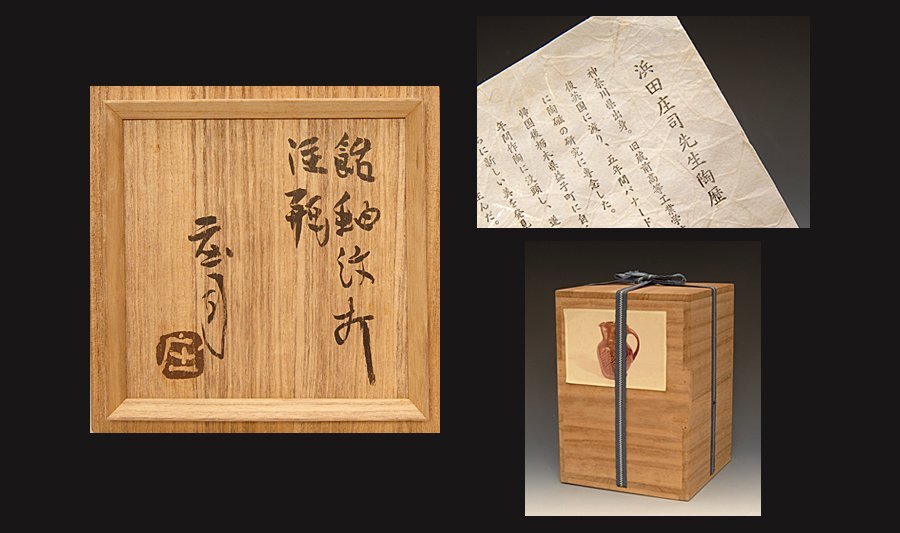 飴釉打
注瓶
庄司
庄
浜田庄司先生陶歴
神奈川県出身。旧蔵前高等工業学
後英国に渡り、五年間バナード
に陶磁の研究に専念した。
帰国後栃木県益子町に自
年間作陶に没頭し、
に新しい美を発見